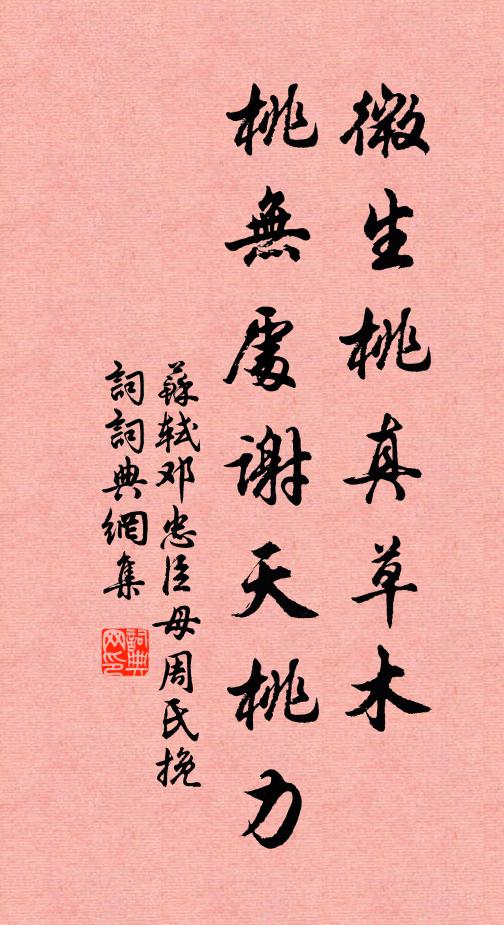 微生桃真草木
桃無處謝天桃力
蘇軾邓忠臣母周氏挽
詞詞典網集
詞典
网印